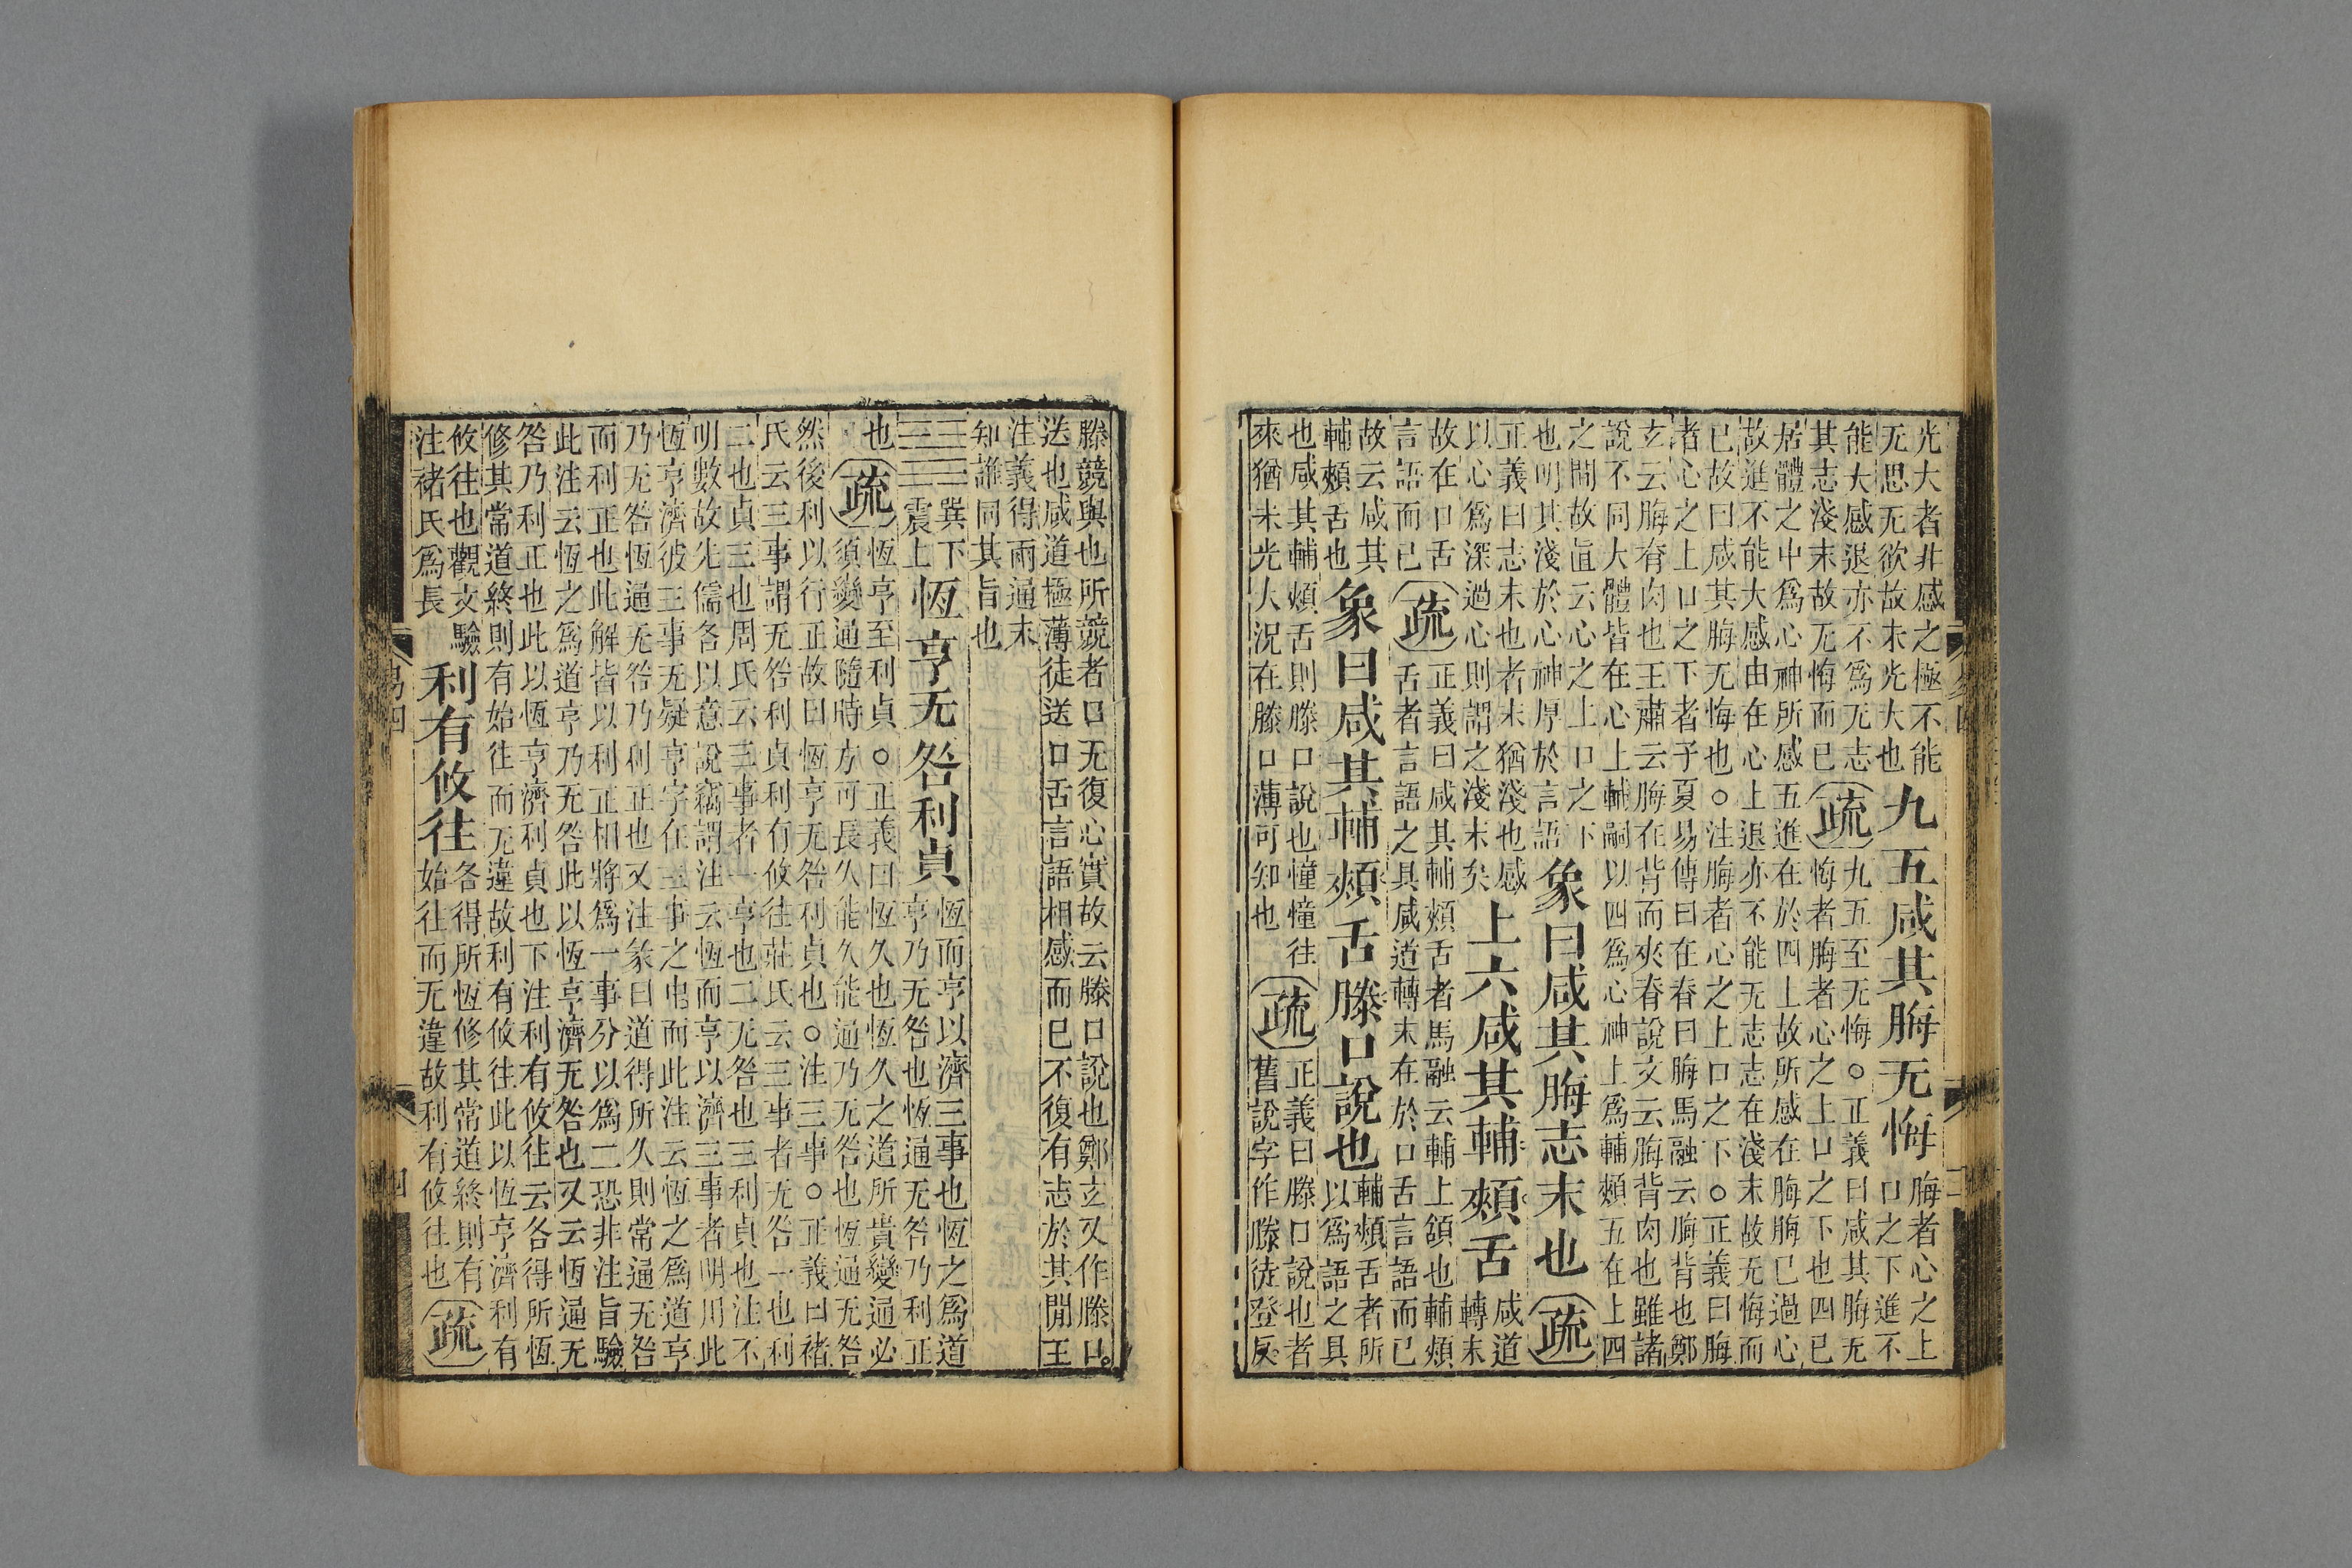 光大者非感之極不能
无思无欲故未光大也
九五咸其脢无悔
脢者心之上
口之下進不
能大感退亦不爲无志
其志淺末故无悔而已
疏
九五至无悔○正義曰咸其脢无
悔者脢者心之上口之下也四已
居體之中爲心神所感五進在於四上故所感在脢脢已過心
故進不能大感由在心上退亦不能无志志在淺末故无悔而
已故曰咸其脢无悔也○注脢者心之上口之下○正義曰脢
者心之上口之下者子夏易傳曰在脊曰脢馬融云脢背也鄭
玄云脢脊肉也王肅云脢在背而夾脊說文云脢背肉也雖諸
說不同大體皆在心上輔嗣以四爲心神上爲輔頰五在上四
之間故直云心之上口之下
也明其淺於心神厚於言語
象曰咸其脢志末也
疏
正義曰志末也者末猶淺也感
以心爲深過心則謂之淺末矣
上六咸其輔頰舌
咸道
轉末
故在口舌
言語而已
疏
正義曰咸其輔頰舌者馬融云輔上頷也輔頰
舌者言語之具咸道轉末在於口舌言語而已
故云咸其
輔頰舌也
象曰咸其輔頰舌滕口說也
輔頰舌者所
以爲語之具
也咸其輔頰舌則滕口說也憧憧往
來猶未光大況在滕口薄可知也
疏
正義曰滕口說也者
舊說字作滕徒登反
滕競與也所競者口无復心實故云滕口說也鄭玄又作滕口。
送也咸道極薄徒送口舌言語相感而已不復有志於其閒王
注義得兩通未
知誰同其旨也
巽下
震上
恆亨无咎利貞
恆而亨以濟三事也恆之爲道
亨乃无咎也恆通无咎乃利正
也
疏
恆亨至利貞○正義曰恆久也恆久之道所貴變通必
須變通隨時方可長久能久能通乃无咎也恆通无咎
然後利以行正故曰恆亨无咎利貞也○注三事○正義曰褚
氏云三事謂无咎利貞利有攸往莊氏云三事者无咎一也利
二也貞三也周氏云三事者一亨也二无咎也三利貞也注不
明數故先儒各以意說竊謂注云恆而亨以濟三事者明用此
恆亨濟彼三事无疑亨字在三事之中而此注云恆之爲道亨
乃无咎恆通无咎乃利正也又注彖曰道得所久則常通无咎
而利正也此解皆以利正相將爲一事分以爲二恐非注旨驗
此注云恆之爲道亨乃无咎此以恆亨濟无咎也又云恆通无
咎乃利正也此以恆亨濟利貞也下注利有攸往云各得所恆
修其常道終則有始往而无違故利有攸往此以恆亨濟利有
攸往也觀文驗
注褚氏爲長
利有攸往
各得所恆修其常道終則有
始往而无違故利有攸往也
疏
易四